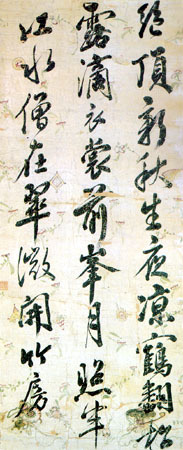 絶頂新秋生夜涼鶴翻松
露滴衣裳前峯月照半
江水僧在翠微開竹房